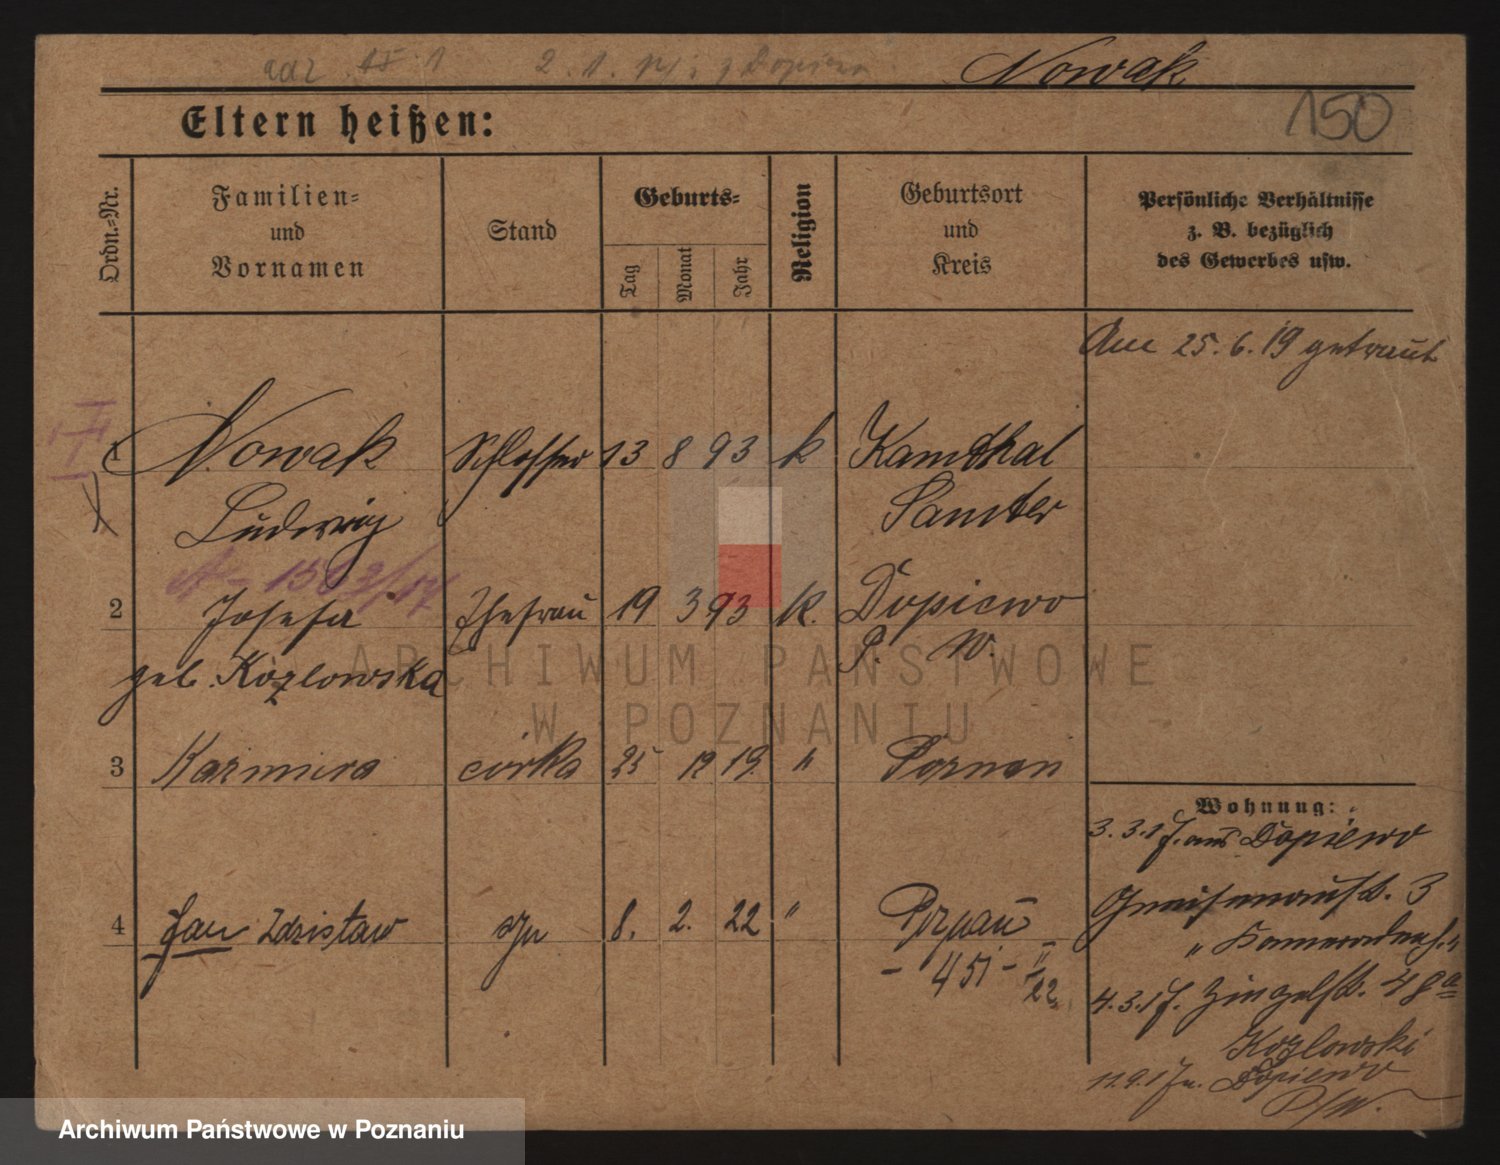 adr. 2. 1. z Dopiewa Nowak
Eltern heißen: 150
Ordn.-Nr.
Familien-
und
Vornamen
Stand
Geburts-
Tag
Monat
Jahr
Religion
Geburtsort
und
Kreis
Persönliche Verhältnisse
z. B. bezüglich
des Gewerbes usw.
Am 25. 6. 19 getraut
1 Nowak Schlosser 13 8 93 k Kamthal
Ludwig Samter
2 Josefa Ehefrau 19 3 93 k. Dopiewo
geb. Kozlowska P. W.
3 Kazmira córka 25 12 19. " Poznan
4 Jan Zdzisław syn 8. 2. 22 " Poznań
- 451 - II/22
Wohnung:
3. 3. 17. aus Dopiewo
Gneisenaustr. 3
"
4. 3. 17. 48a
Kozlowski
11. 9. 17 n. Dopiewo
P/W.
ARCHIWUM PAŃSTWOWE
W POZNANIU
Archiwum Państwowe w Poznaniu